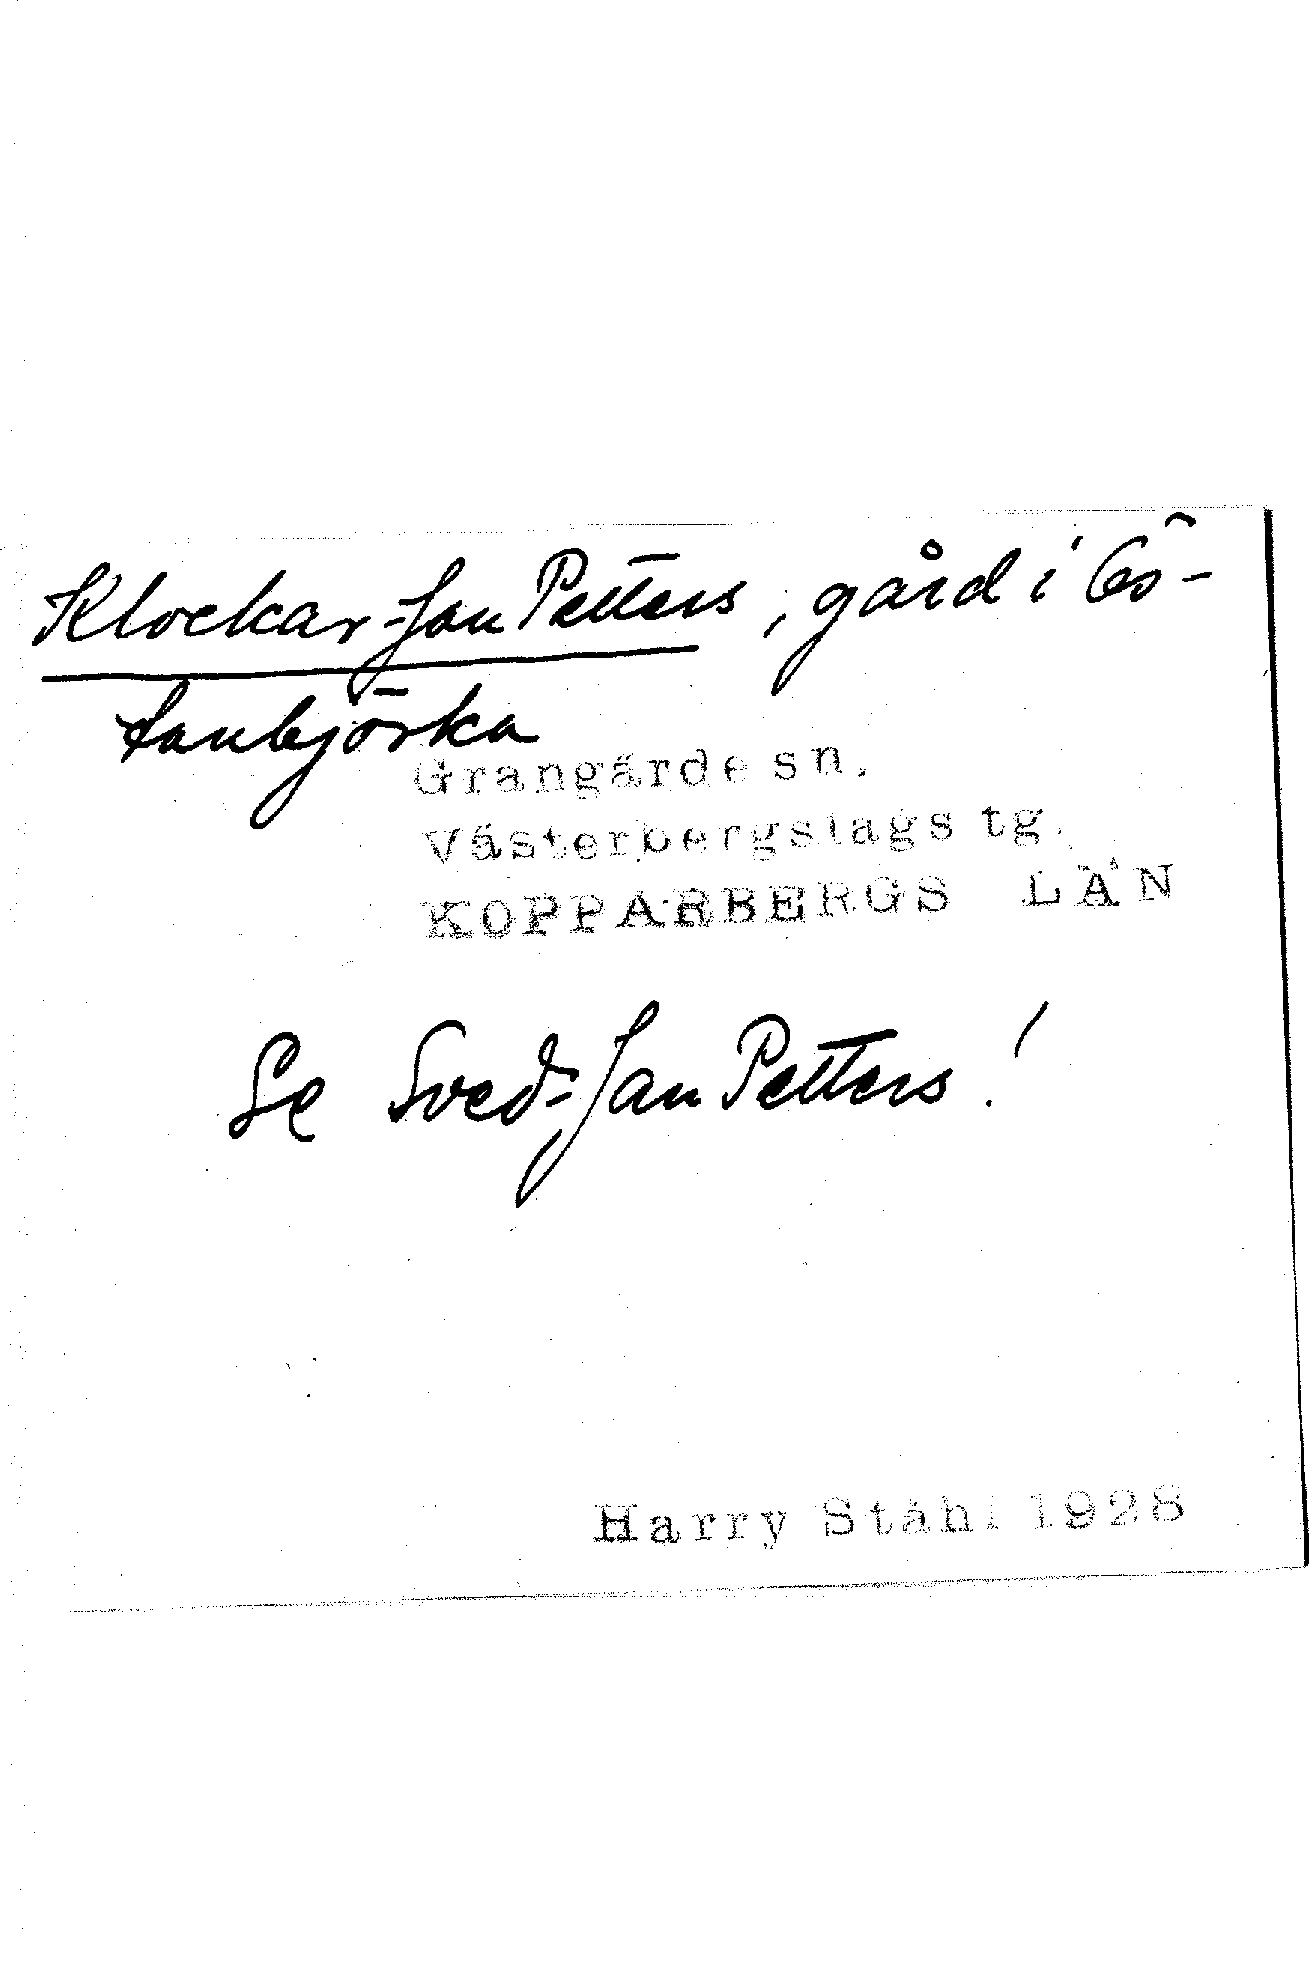 Klockar-Jan Petters, gård i Ös-
tanbjörka
Grangärde sn.
Västerbergslags tg.
KOPPARBERGS LÄN
Se Sved-Jan Petters!
Harry Ståhl 1928